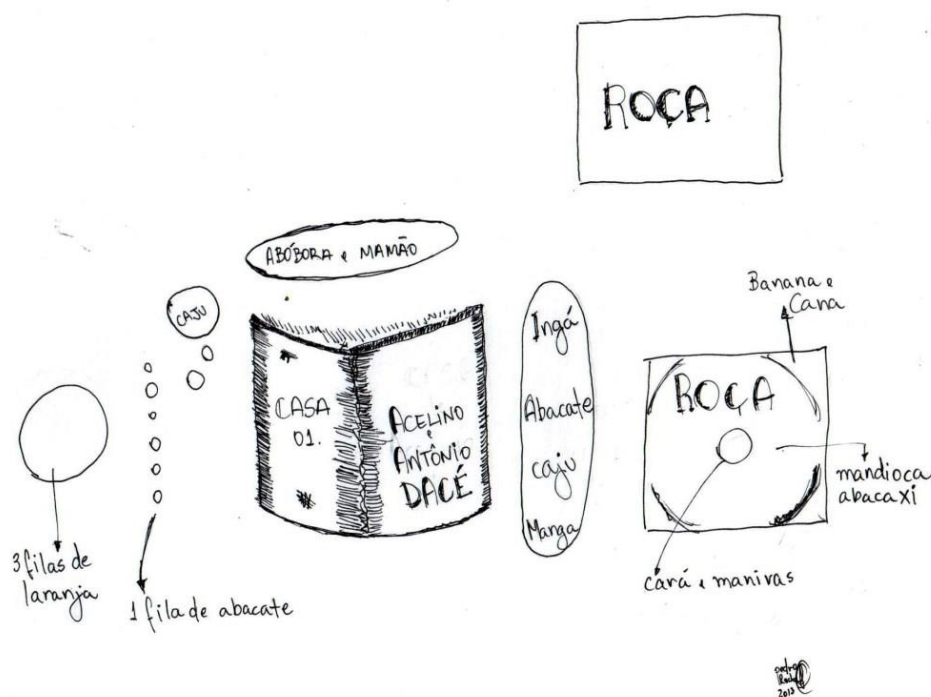 ROÇA
ABÓBORA e MAMÃO
CAJU
CASA
01.
ACELINO
e
ANTÔNIO
DACÉ
Ingá
Abacate
caju
Manga
Banana e
Cana
ROÇA
mandioca
abacaxi
cará e manivas
3 filas de
laranja
1 fila de abacate
2013